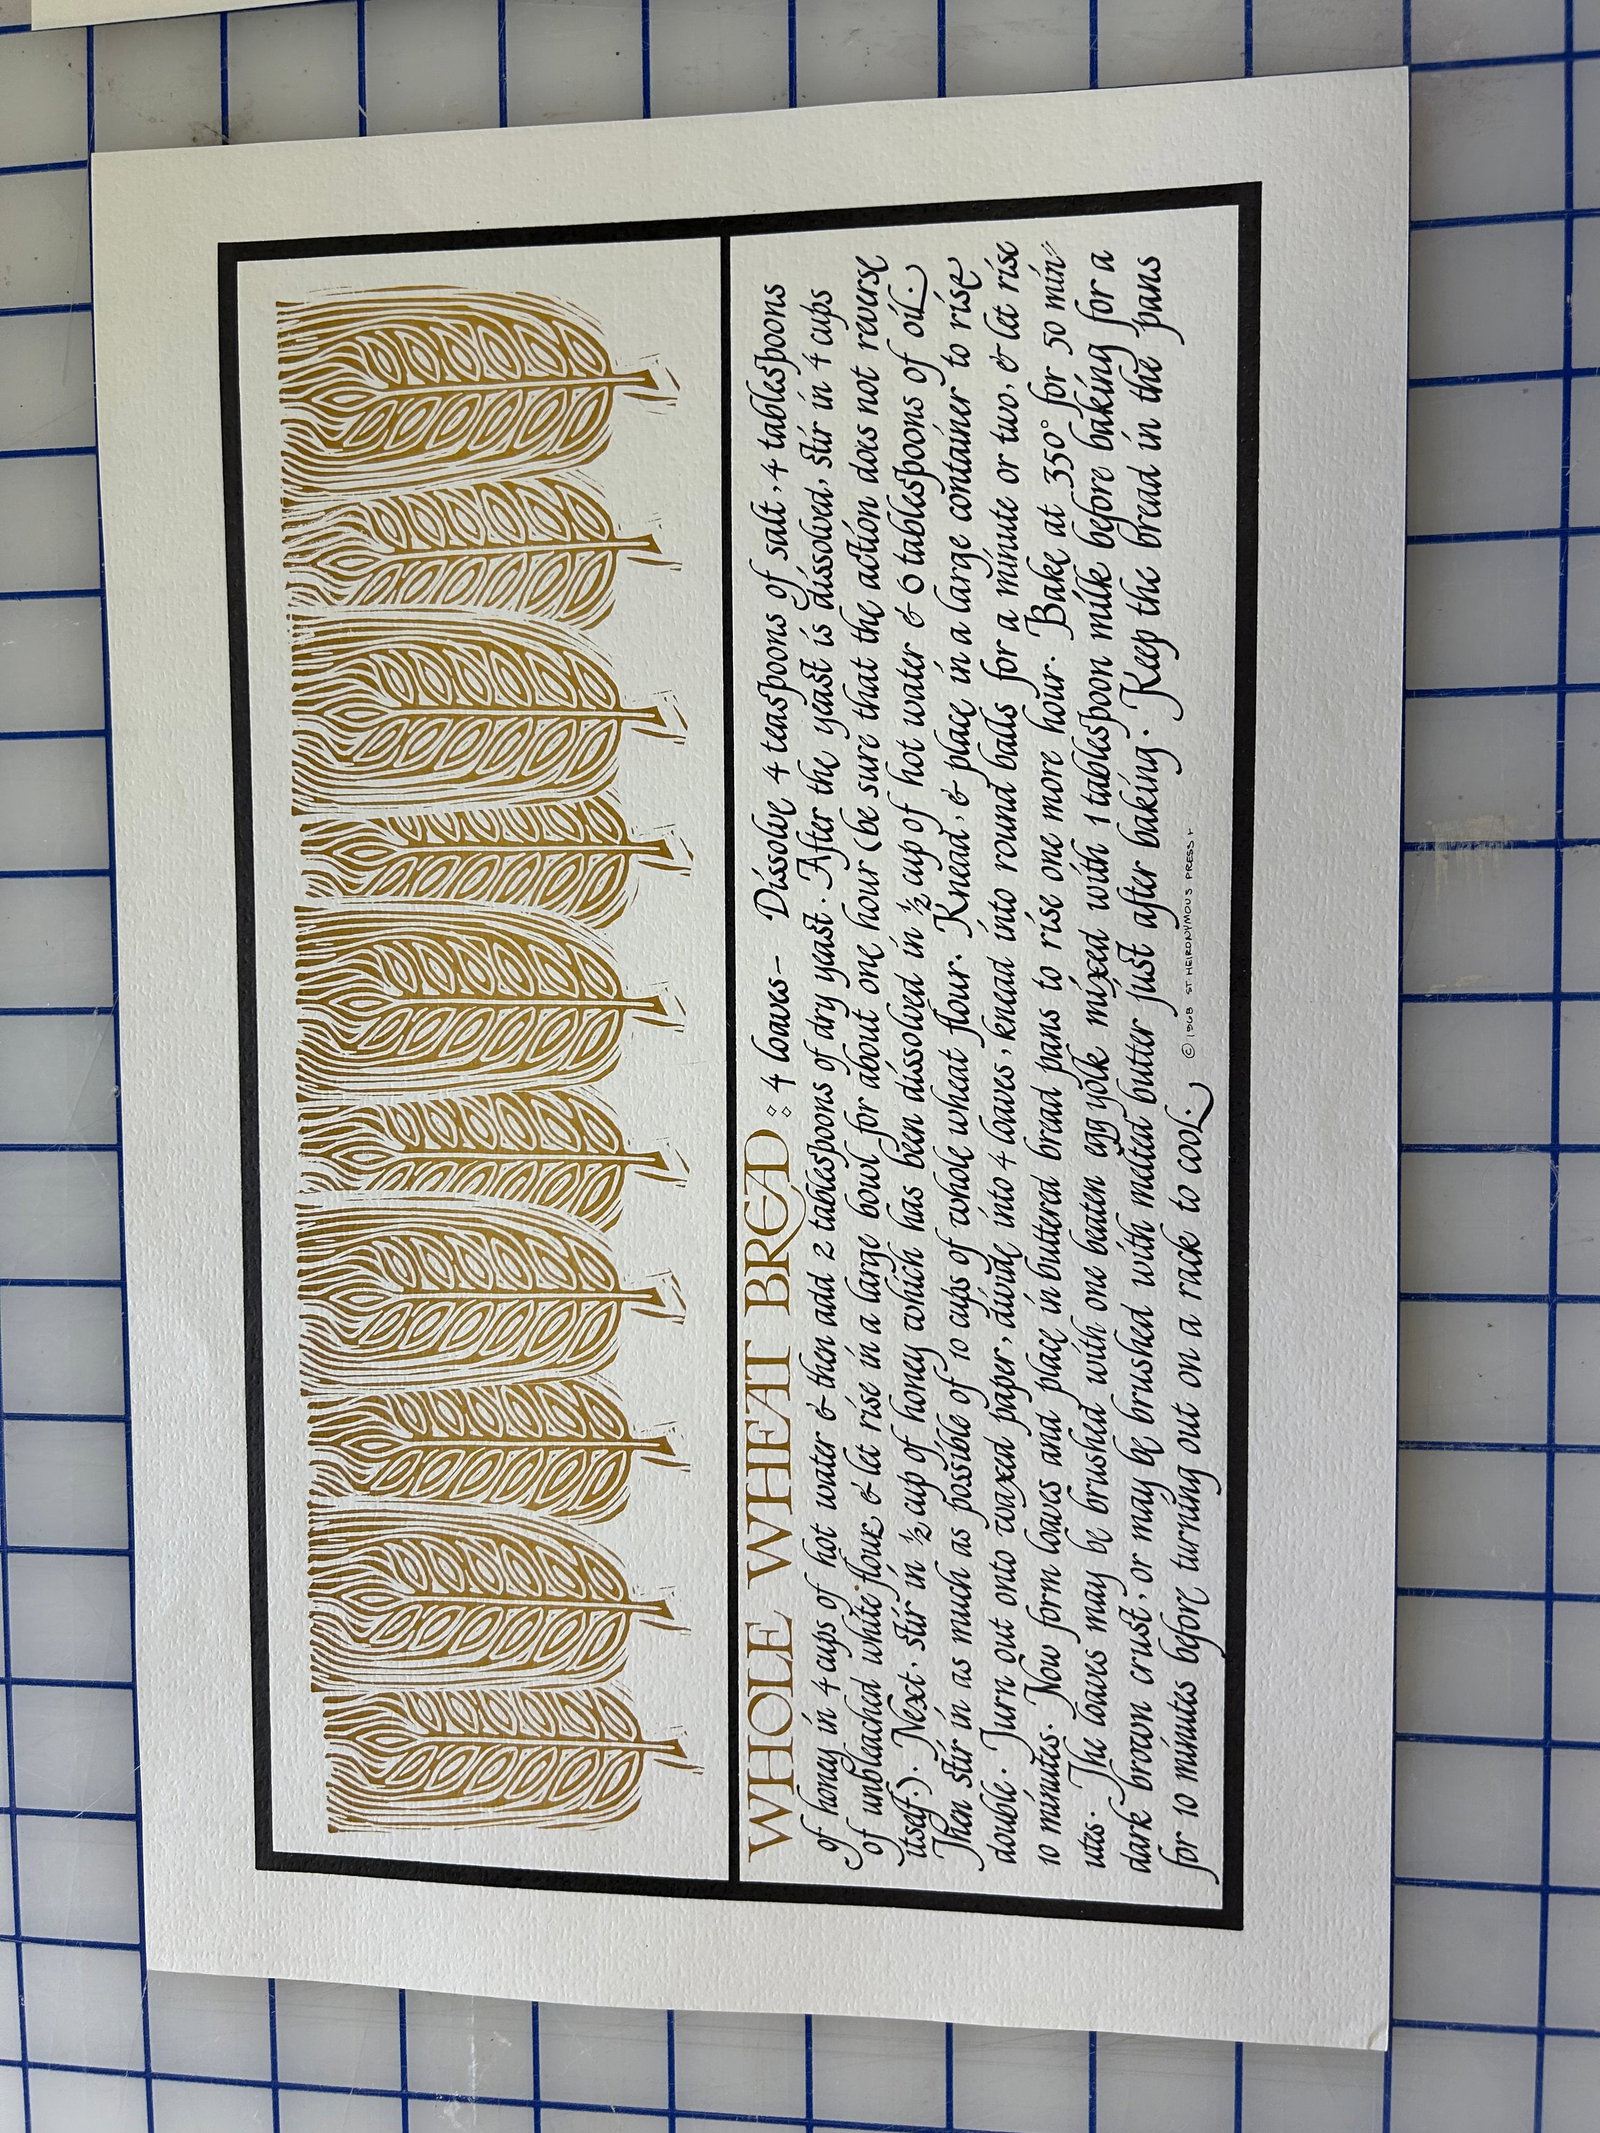 WHOLE WHEAT BREAD : 4 loaves – Dissolve 4 teaspoons of salt, 4 tablespoons
of honey in 4 cups of hot water & then add 2 tablespoons of dry yeast. After the yeast is dissolved, stir in 4 cups
of unbleached white flour & let rise in a large bowl for about one hour (be sure that the action does not reverse
itself.). Next, stir in ½ cup of honey which has been dissolved in ½ cup of hot water & 6 tablespoons of oil.
Then stir in as much as possible of 10 cups of whole wheat flour. Knead, & place in a large container to rise
double. Turn out onto waxed paper, divide into 4 loaves, knead into round balls for a minute or two, & let rise
10 minutes. Now form loaves and place in buttered bread pans to rise one more hour. Bake at 350° for 50 min-
utes. The loaves may be brushed with one beaten egg yolk mixed with 1 tablespoon milk before baking for a
dark brown crust, or may be brushed with melted butter just after baking. Keep the bread in the pans
for 10 minutes before turning out on a rack to cool.
© 1968 ST HEIRONYMOUS PRESS